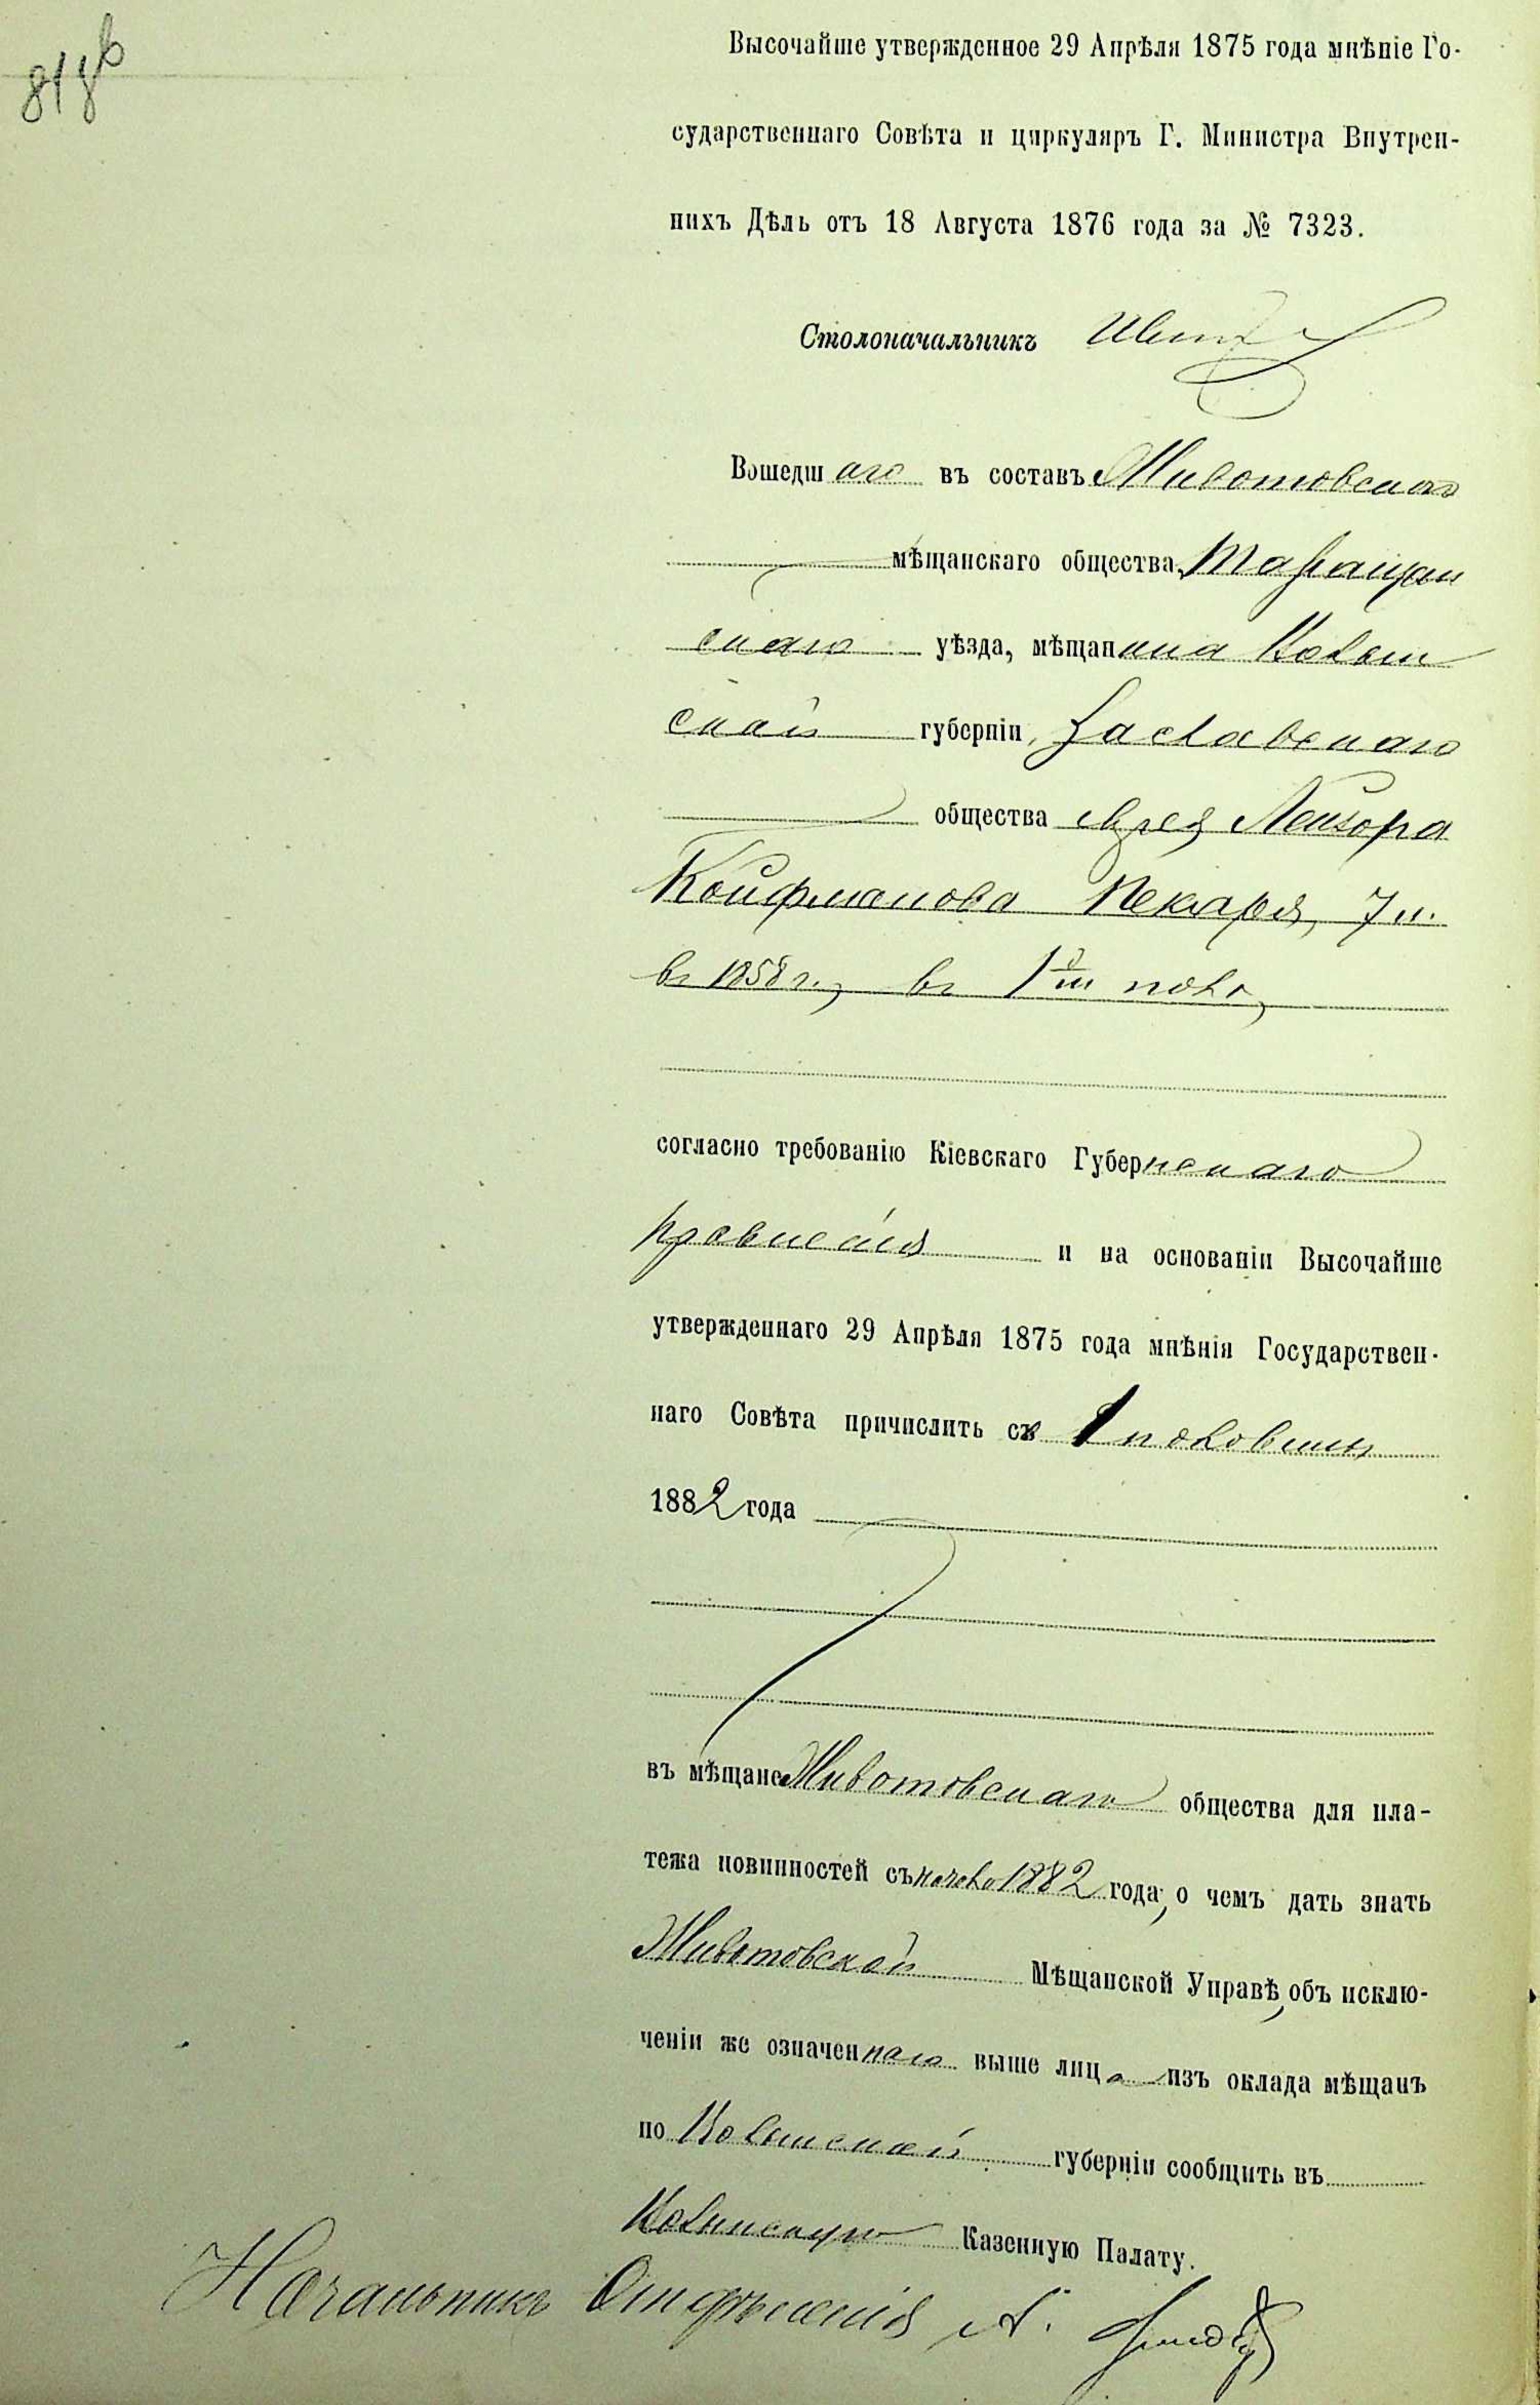 Высочайше утвержденное 29 Апрѣля 1875 года мнѣніе Го-
сударственнаго Совѣта и циркуляръ Г. Министра Внутрен-
нихъ Дѣлъ отъ 18 Августа 1876 года за № 7323.
Столоначальникъ
Вошедшаго въ составъ Животовскаго
мѣщанскаго общества, Таращан
скаго уѣзда, мѣщанина Волын
ской губерніи, Заславскаго
общества еврея Лейзора
Койфманова Пекаря, 7 л.
въ 1858 г., въ 1й пол.,
согласно требованію Кіевскаго Губернскаго
правленія и на основаніи Высочайше
утвержденнаго 29 Апрѣля 1875 года мнѣнія Государствен-
наго Совѣта причислить съ 1 половины
1882 года
въ мѣщане Животовскаго общества для пла-
тежа повинностей съ начала 1882 года, о чемъ дать знать
Животовской Мѣщанской Управѣ, объ исклю-
ченіи же означеннаго выше лица изъ оклада мѣщанъ
по Волынской губерніи сообщить въ
Волынскую Казенную Палату.
Начальникъ Отдѣленія А.